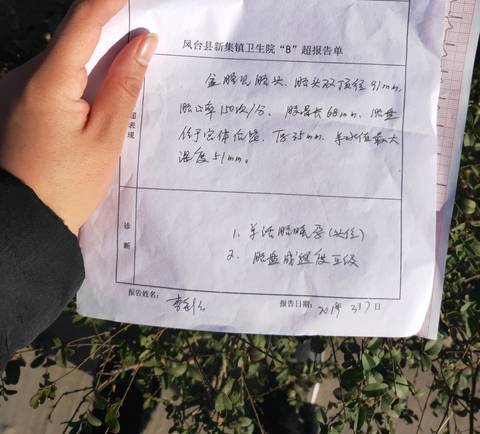 凤台县新集镇卫生院“B”超报告单
超
表
现
盆腔见胎头、胎头双顶径91mm,
胎心率150次/分、股骨长68mm,胎盘
位于宫体后壁、厚35mm、羊水值最大
深度51mm。
诊
断
1、单活胎晚孕(头位)
2、胎盘成熟度Ⅱ级
报告姓名:
报告日期:
日